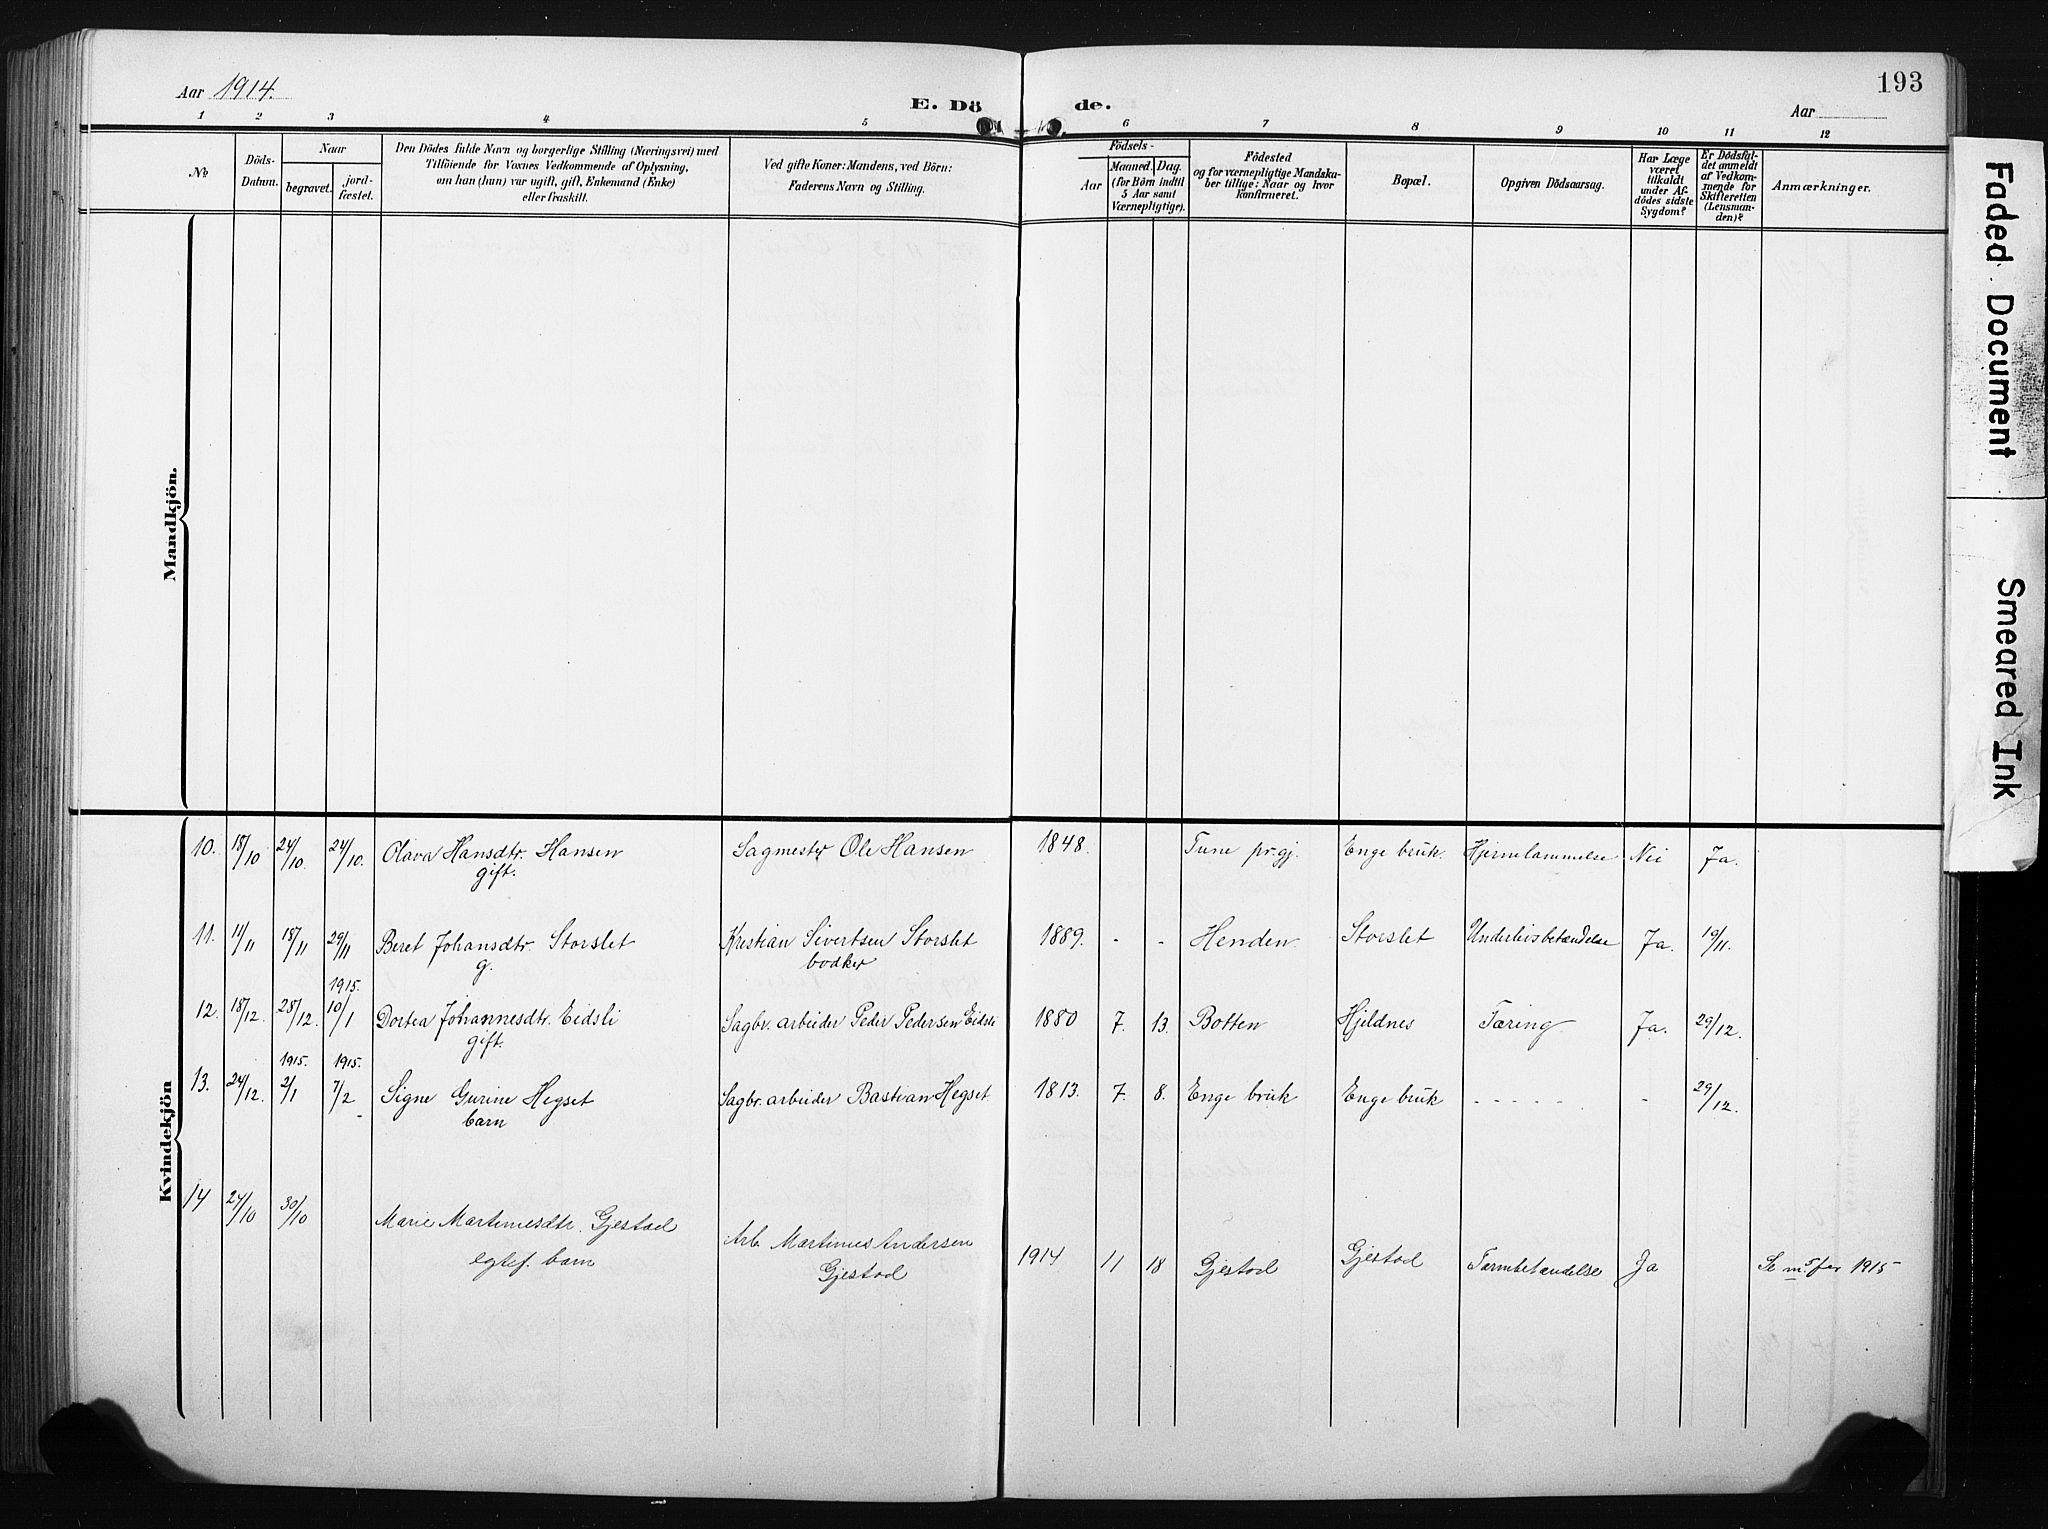 193
Aar 1914.
E. Döde.
Aar
1 2 3 4 5 6 7 8 9 10 11 12
No
Döds-
Datum.
Naar
begravet.
jord-
fæstet.
Den Dödes fulde Navn og borgerlige Stilling (Næringsvei) med
Tilföiende for Voxnes Vedkommende af Oplysning,
om han (hun) var ugift, gift, Enkemand (Enke)
eller fraskilt.
Ved gifte Koner: Mandens, ved Börn:
Faderens Navn og Stilling.
Födsels-
Aar
Maaned. Dag.
(for Börn indtil
5 Aar samt
Værnepligtige).
Födested
og for værnepligtige Mandska-
ber tillige: Naar og hvor
konfirmeret.
Bopæl.
Opgiven Dödsaarsag.
Har Læge
været
tilkaldt
under Af-
dödes sidste
Sygdom?
Er Dödsfal-
det anmeldt
af Vedkom-
mende for
Skifteretten
(Lensman-
den)?
Anmærkninger.
Mandkjön.
Kvindekjön
10. 18/10 24/10 24/10. Olava Hansdtr. Hansen Sagmester Ole Hansen 1848. Tune pr.gj. Enge bruk. Hjernelammelse Nei Ja.
gift.
11. 11/11 18/11 29/11 Beret Johansdtr. Storslet Kristian Sivertsen Storslet 1889. - - Henden Storslet Underlivsbetændelse Ja. 19/11.
g. bødker
1915.
12. 18/12. 28/12. 10/1 Dortea Johannesdtr. Eidsli Sagbr. arbeider Peder Pedersen Eidsli 1880 7. 13. Botten Hjeldnes Tæring Ja. 29/12.
gift.
1915. 1915.
13. 24/12. 2/1 7/2 Signe Gurine Hegset Sagbr. arbeider Bastian Hegset 1813. 7. 8. Enge bruk Enge bruk - - - - - - 29/12.
barn
14 27/10 30/10 Marie Martinusdtr. Gjestad Arb. Martinus Andersen 1914 11 18 Gjestad Gjestad Tarmbetændelse Ja Se for 1915
egtef. barn Gjestad
Faded Document
Smeared Ink